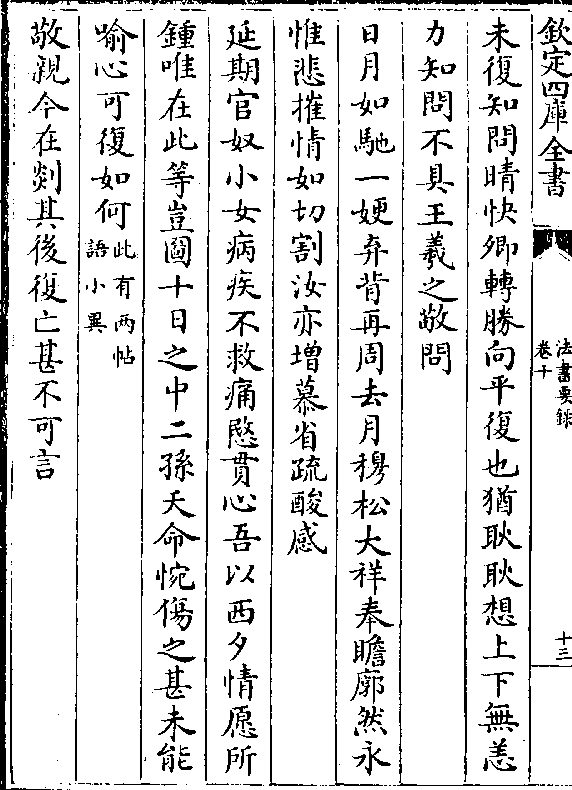 欽定四庫全書
法書要録
卷十
十三
未復知問晴快卿轉勝向平復也猶耿耿想上下無恙
力知問不具王羲之敬問
日月如馳一嫂弃背再周去月穆松大祥奉瞻廓然永
惟悲摧情如切割汝亦增慕省疏酸感
延期官奴小女病疾不救痛愍貫心吾以西夕情愿所
鍾唯在此等豈圖十日之中二孫夭命惋傷之甚未能
喻心可復如何此有兩帖
語小異
敬親今在剡其後復亡甚不可言